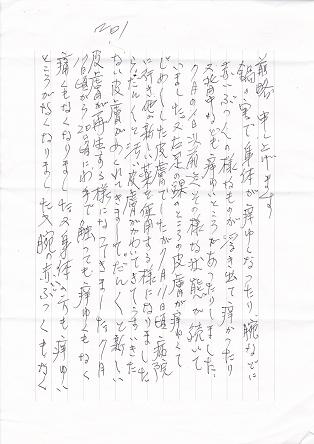 No1
前略 申し上げます
鍋の実で身体が痒ゆくなったり腕などに
赤いぶつぶつの様なものが浮き出て痒かったり
又背中なども痒ゆいところがあったりしました
7月の1日以前迄その様な状態が続いて
いました又右足の踝のところの皮膚が痒ゆくて
じめじめした皮膚でしたが7月11日頃病院
に行き他の新しい薬を使用する様になりました
らだんだんと汚い皮膚がかわいてきてうすいきた
ない皮膚がめくれてきまして だんだんと新しい
皮膚が再生する様になってきました7月
18日頃から20日頃にわ手で触っても痒ゆくもなく
痛くもなくなりました又身体の方も痒ゆい
ところがなくなりました又腕の赤いぶつぶつもなく